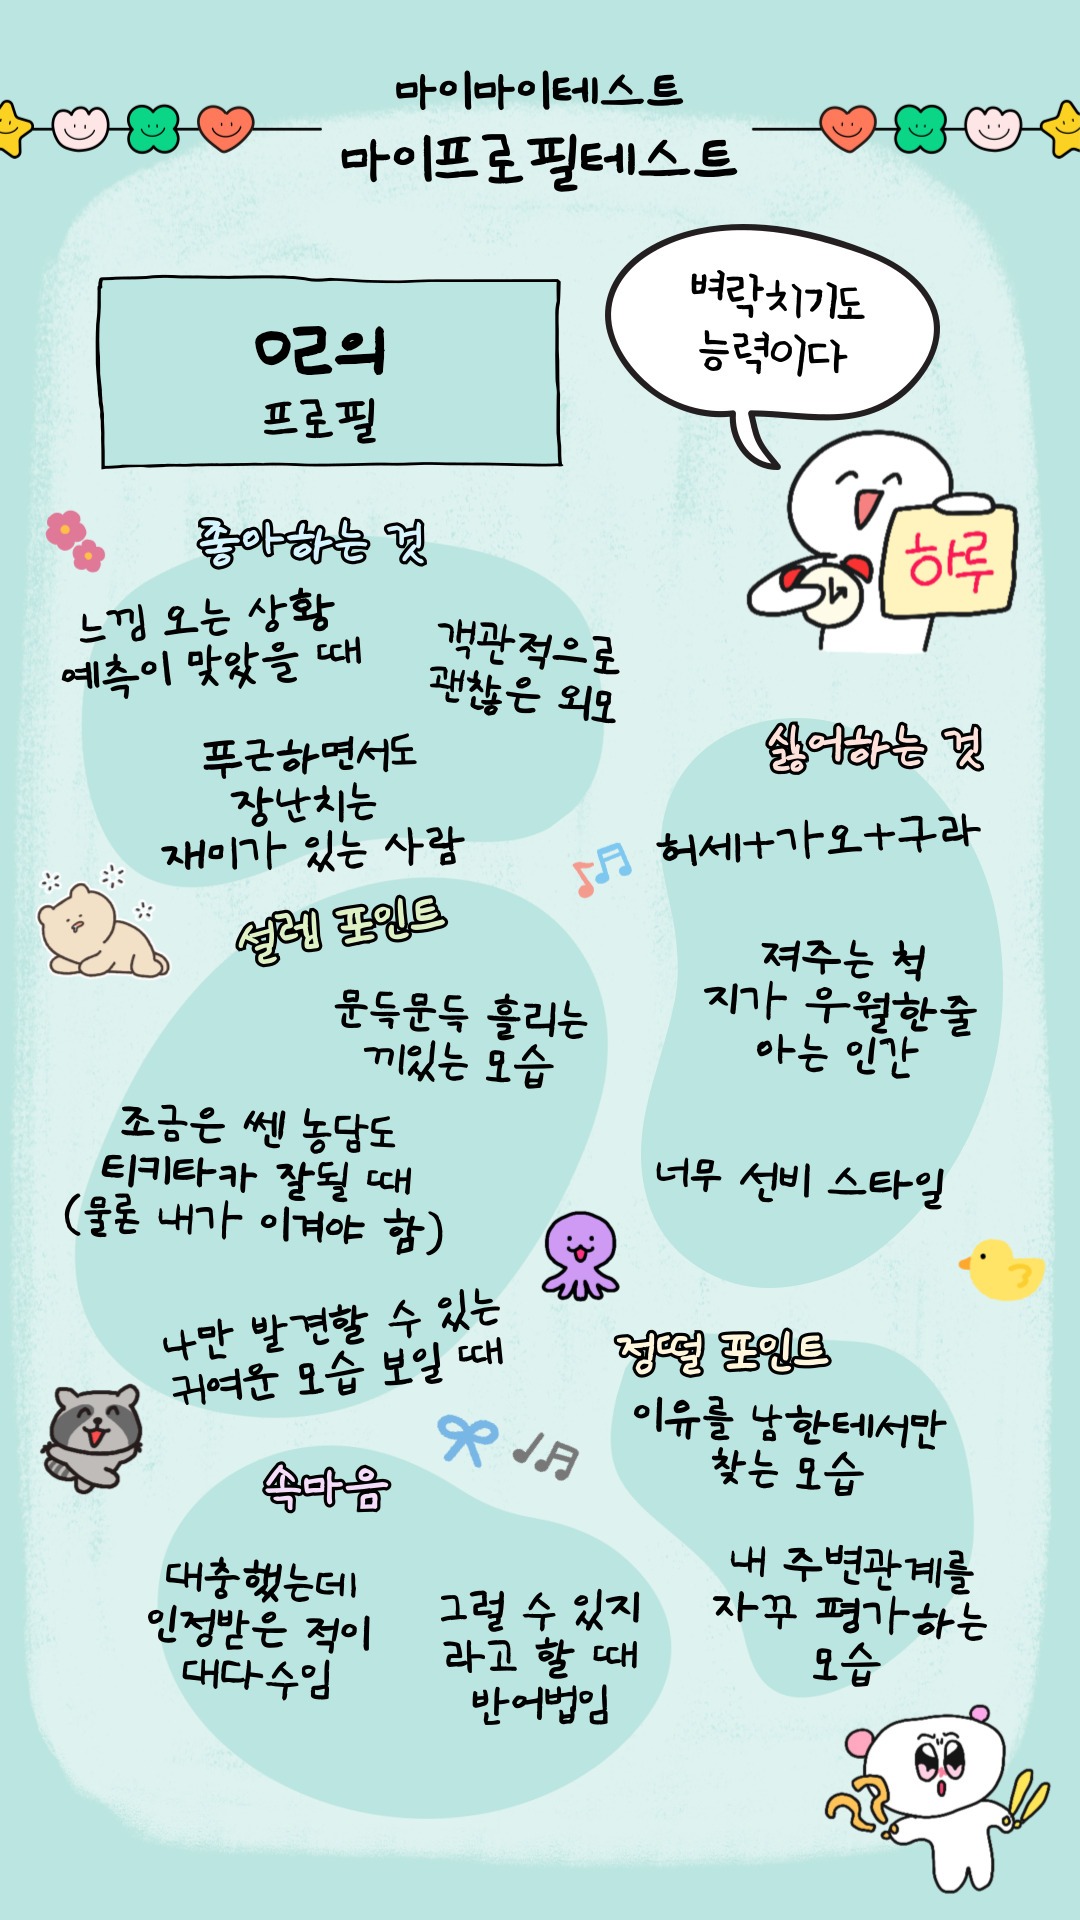 마이마이테스트
마이프로필테스트
벼락치기도
능력이다
ㅇㄹ의
프로필
하루
좋아하는 것
느낌 오는 상황
예측이 맞았을 때
객관적으로
괜찮은 외모
푸근하면서도
장난치는
재미가 있는 사람
싫어하는 것
허세+가오+구라
져주는 척
지가 우월한줄
아는 인간
너무 선비 스타일
설렘 포인트
문득문득 흘리는
끼있는 모습
조금은 쎈 농담도
티키타카 잘될 때
(물론 내가 이겨야 함)
나만 발견할 수 있는
귀여운 모습 보일 때
정떨 포인트
이유를 남한테서만
찾는 모습
내 주변관계를
자꾸 평가하는
모습
속마음
대충했는데
인정받은 적이
대다수임
그럴 수 있지
라고 할 때
반어법임